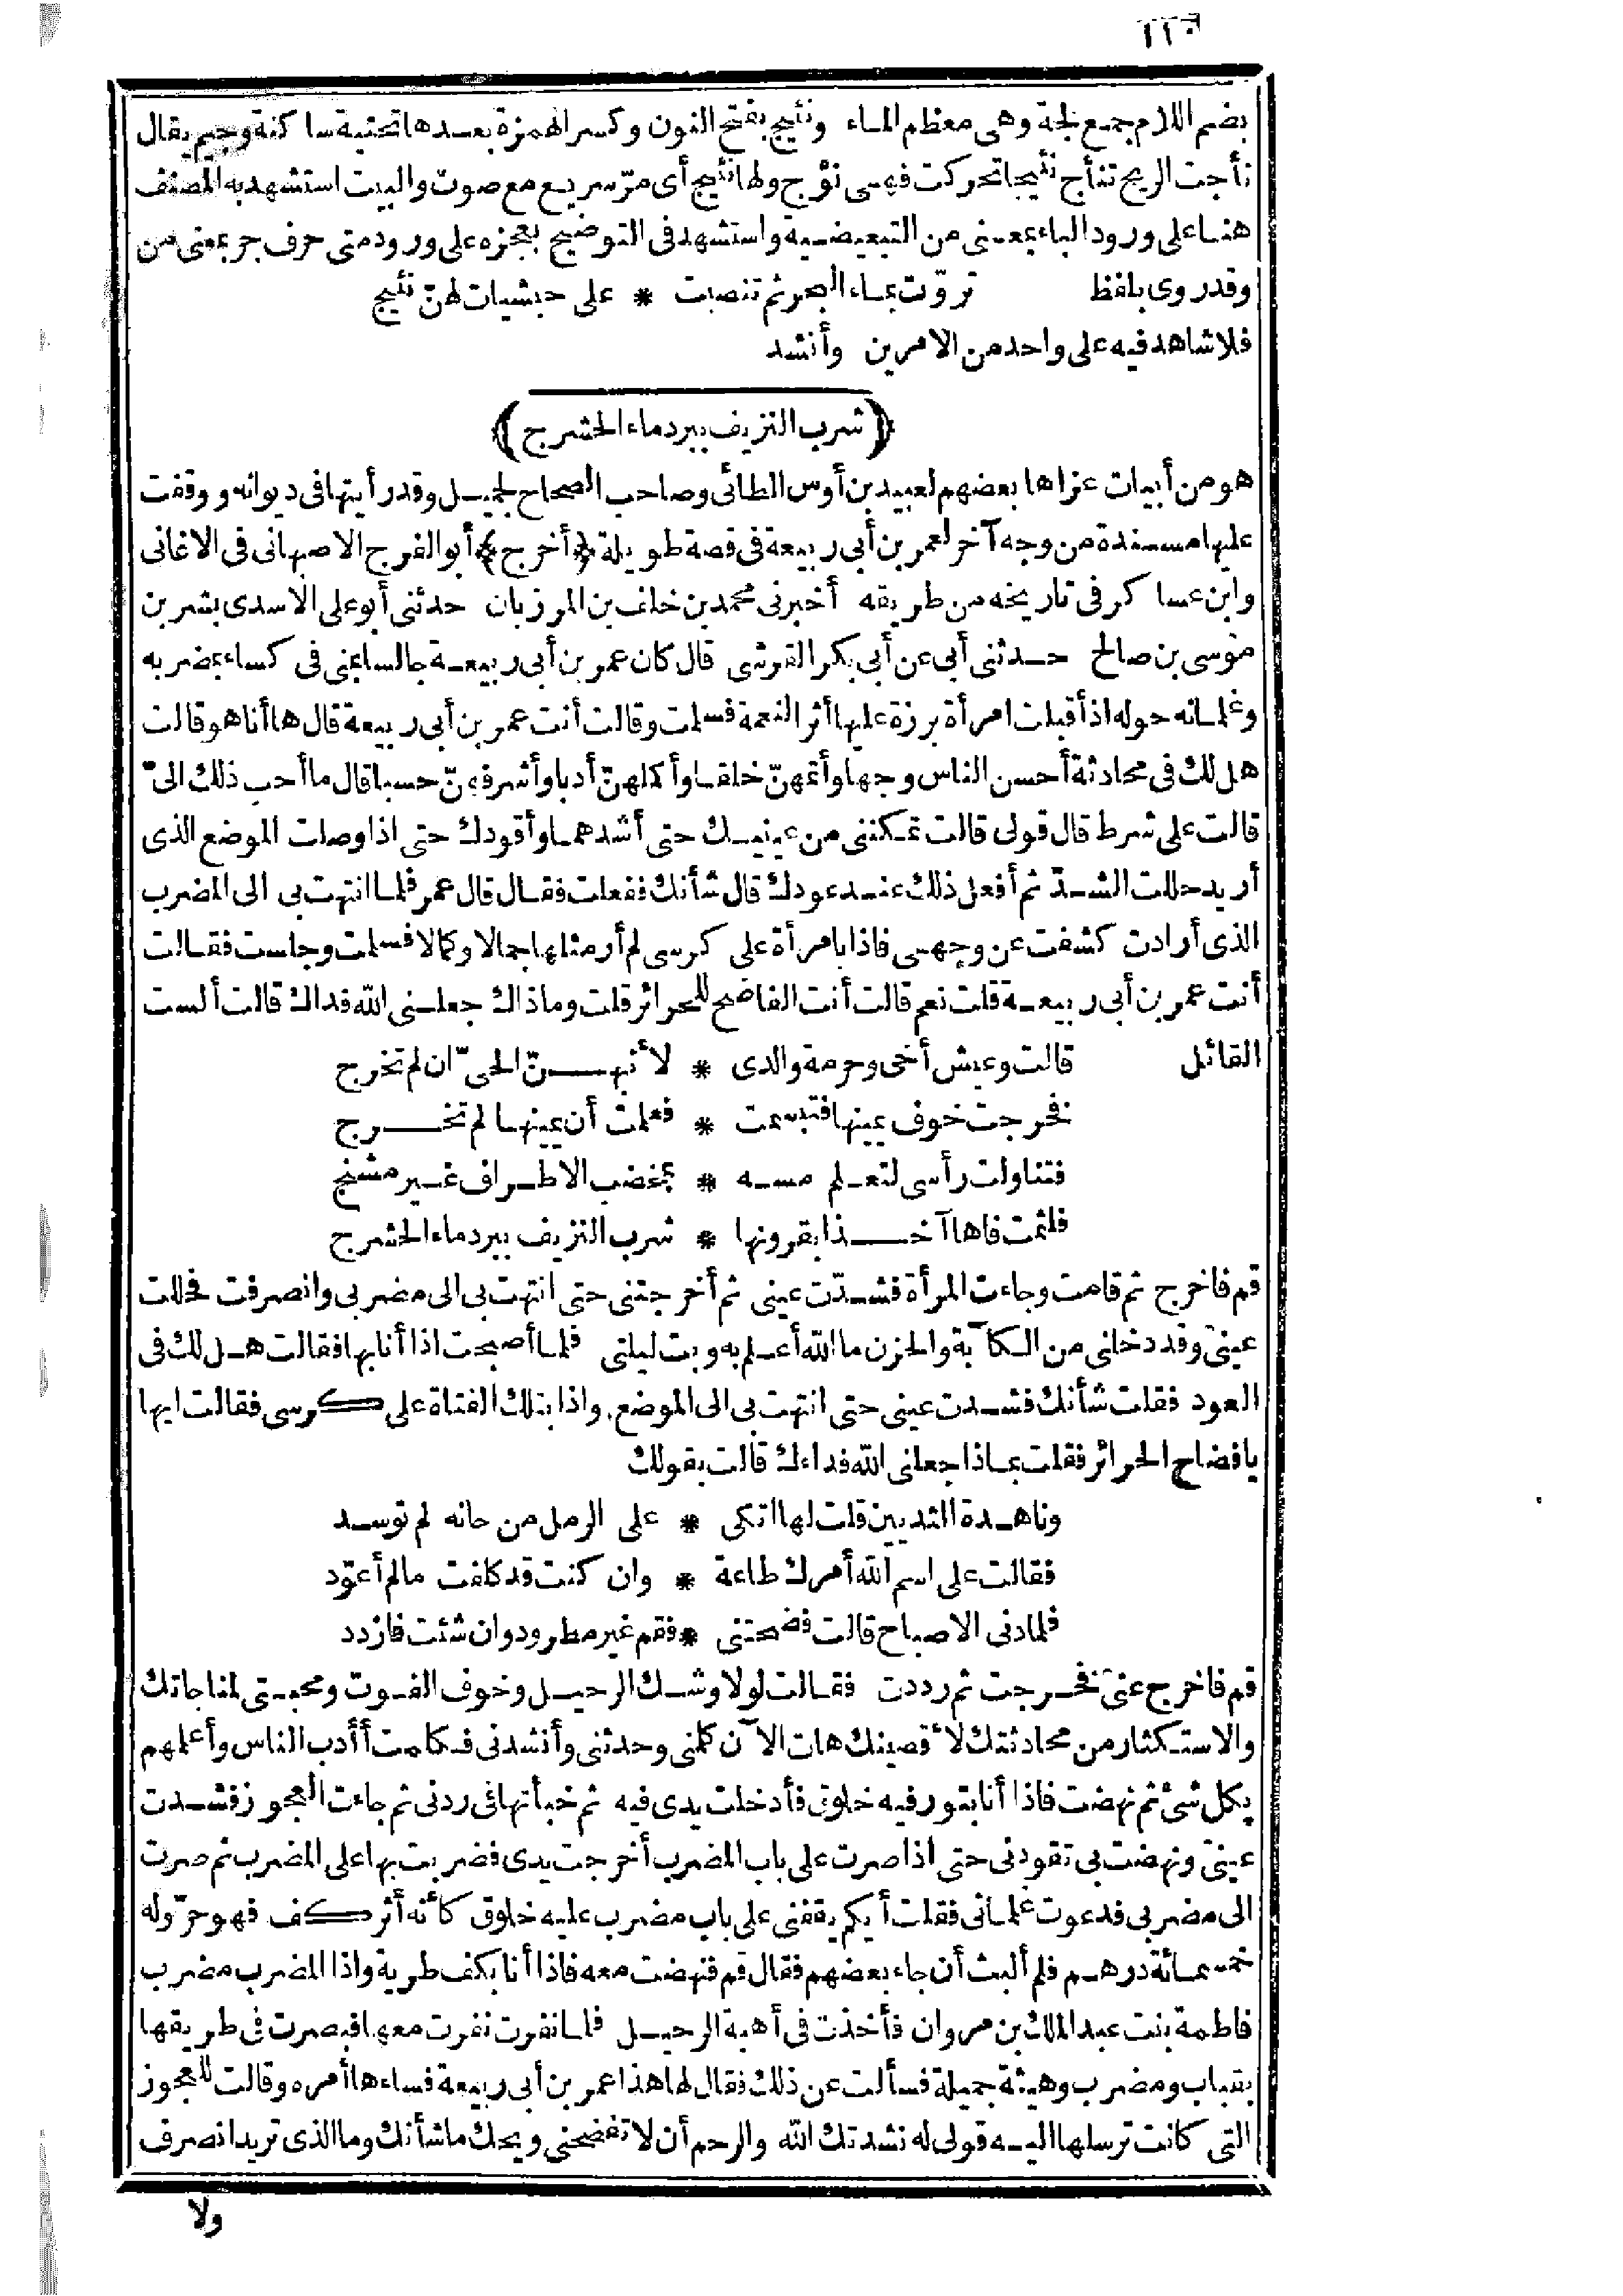 ١١٠
بضم اللام جمع لجة وهى معظم الماء ونئيج بفتح النون وكسر الهمزة بعدها تحتية ساكنة وجيم يقال
نأجت الريح تنأج نئيجا تحركت فهى نؤج ولها نئيج أى مرّ سريع مع صوت والبيت استشهد به المصنف
هنا على ورود الباء بمعنى من التبعيضية واستشهد فى التوضيح بعجزه على ورود متى حرف جر بمعنى من
وقد روى بلفظ تروّت بماء البحر ثم تنصبت * على حبشيات لهنّ نئيج
فلا شاهد فيه على واحد من الامرين وأنشد
﴿شرب النزيف ببرد ماء الحشرج﴾
هو من أبيات عزاها بعضهم لعبيد بن أوس الطائى وصاحب الصحاح لجميل وقد رأيتها فى ديوانه ووقفت
عليها مسندة من وجه آخر لعمر بن أبى ربيعة فى قصة طويلة ﴿أخرج﴾ أبو الفرج الاصبهانى فى الاغانى
وابن عساكر فى تاريخه من طريقه أخبرنى محمد بن خلف بن المرزبان حدثنى أبو على الاسدى بشر بن
موسى بن صالح حدثنى أبى عن أبى بكر القرشى قال كان عمر بن أبى ربيعة جالسا بمنى فى كساء بمضربه
وغلمانه حوله اذ أقبلت امرأة برزة عليها أثر النعمة فسلمت وقالت أنت عمر بن أبى ربيعة قال ها أنا هو قالت
هل لك فى محادثة أحسن الناس وجها وأتمهنّ خلقا وأكملهنّ أدبا وأشرفهنّ حسبا قال ما أحب ذلك الىّ
قالت على شرط قال قولى قالت تمكننى من عينيك حتى أشدهما وأقودك حتى اذا وصلت الموضع الذى
أريد حللت الشدّ ثم أفعل ذلك عند عودك قال شأنك ففعلت فقال قال عمر فلما انتهت بى الى المضرب
الذى أرادت كشفت عن وجهى فاذا بامرأة على كرسى لم أر مثلها جمالا وكمالا فسلمت وجلست فقالت
أنت عمر بن أبى ربيعة قلت نعم قالت أنت الفاضح للحرائر قلت وما ذاك جعلنى الله فداك قالت ألست
القائل قالت وعيش أخى وحرمة والدى * لأنبهنّ الحىّ ان لم تخرج
فخرجت خوف يمينها فتبسمت * فعلمت أن يمينها لم تخرج
فتناولت رأسى لتعلم مسه * بمخضب الاطراف غير مشنج
فلثمت فاها آخذا بقرونها * شرب النزيف ببرد ماء الحشرج
قم فاخرج ثم قامت وجاءت المرأة فشدّت عينى ثم أخرجتنى حتى انتهت بى الى مضربى وانصرفت فحللت
عينىّ وقد دخلنى من الكآبة والحزن ما الله أعلم به وبت ليلتى فلما أصبحت اذا أنا بها فقالت هل لك فى
العود فقلت شأنك فشدت عينى حتى انتهت بى الى الموضع واذا بتلك الفتاة على كرسى فقالت ايها
يا فضاح الحرائر فقلت بماذا جعلنى الله فداءك قالت بقولك
وناهدة الثديين قلت لها اتكى * على الرمل من جانه لم توسد
فقالت على اسم الله أمرك طاعة * وان كنت قد كلفت مالم أعوّد
فلما دنى الاصباح قالت فضحتنى * فقم غير مطرود وان شئت فازدد
قم فاخرج عنى فخرجت ثم رددت فقالت لولا وشك الرحيل وخوف الفوت ومحبتى لمناجاتك
والاستكثار من محادثتك لأقصينك هات الآن كلمنى وحدثنى وأنشدنى فكلمت أأدب الناس وأعلمهم
بكل شئ ثم نهضت فاذا أنا بتور فيه خلوق فأدخلت يدى فيه ثم خبأتها فى ردنى ثم جاءت العجوز فشدت
عينىّ ونهضت بى تقودنى حتى اذا صرت على باب المضرب أخرجت يدى فضربت بها على المضرب ثم صرت
الى مضربى فدعوت غلمانى فقلت أيكم يقفنى على باب مضرب عليه خلوق كأنه أثر كف فهو حرّ وله
خمسمائة درهم فلم ألبث أن جاء بعضهم فقال قم فنهضت معه فاذا أنا بكف طرية واذا المضرب مضرب
فاطمة بنت عبد الملك بن مروان فأخذت فى أهبة الرحيل فلما نفرت نفرت معها فبصرت فى طريقها
بقباب ومضرب وهيئة جميلة فسألت عن ذلك فقال لها هذا عمر بن أبى ربيعة فساءها أمره وقالت للعجوز
التى كانت ترسلها اليه قولى له نشدتك الله والرحم أن لا تفضحنى ويحك ما شأنك وما الذى تريد انصرف
ولا